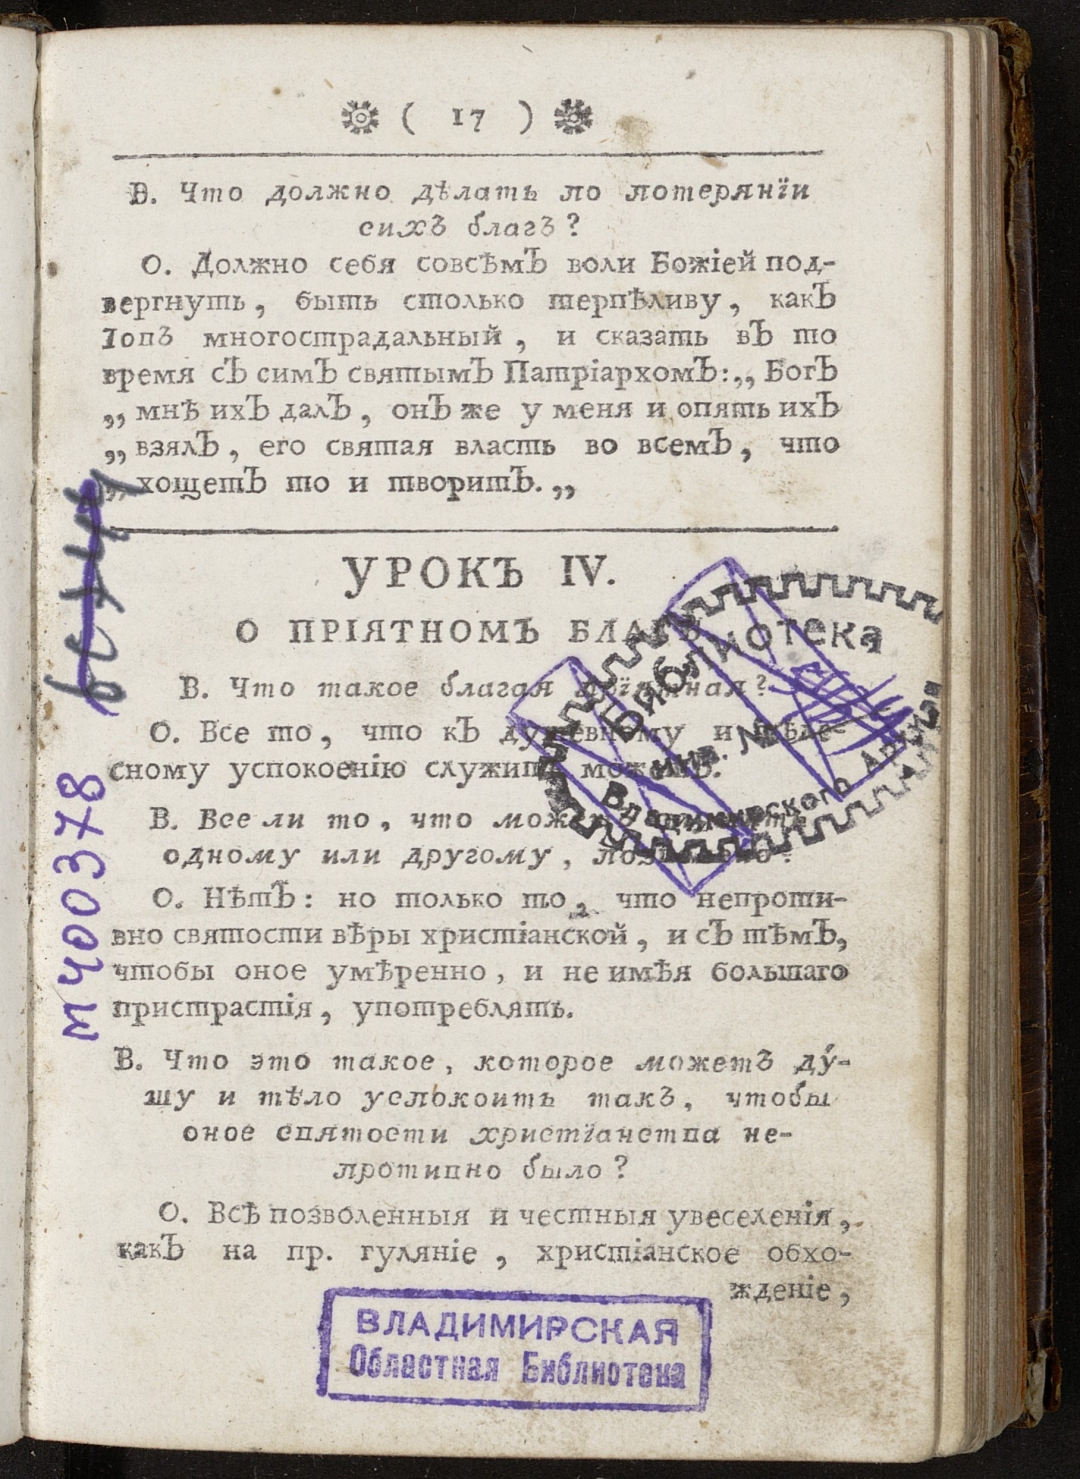 ( 17 )
В. Что должно дѣлать по потерянїи
сихъ благъ?
О. Должно себя совсѣмЪ воли Божіей под-
вергнуть, быть столько терпѣливу, какЪ
Іовъ многострадальный, и сказать вЪ то
время сЪ симЪ святымЪ ПатріархомЪ: „ БогЪ
„ мнѣ ихЪ далЪ, онЪ же у меня и опять ихЪ
„ взялЪ, его святая власть во всемЪ, что
„ хощетЪ то и творитЪ. „
УРОКЪ IV.
О ПРІЯТНОМЪ БЛАГѢ.
В. Что такое благая прїятная?
О. Все то, что кЪ душевному и тѣле-
сному успокоенію служить можетЪ.
В. Все ли то, что можетъ
одному или другому, позволено?
О. НѣтЪ: но только то, что непроти-
вно святости вѣры христіанской, и сЪ тѣмЪ,
чтобы оное умѣренно, и не имѣя большаго
пристрастія, употреблять.
В. Что это такое, которое можетъ ду́-
шу и тѣло успокоить такъ, чтобы
оное святости христїанства не-
противно было?
О. Всѣ позволенныя и честныя увеселенія,
какЪ на пр. гуляніе, христіанское обхо-
жденіе,
Библиотека
Инв. №
Владимирского
М400378
ВЛАДИМИРСКАЯ
Областная Библиотека